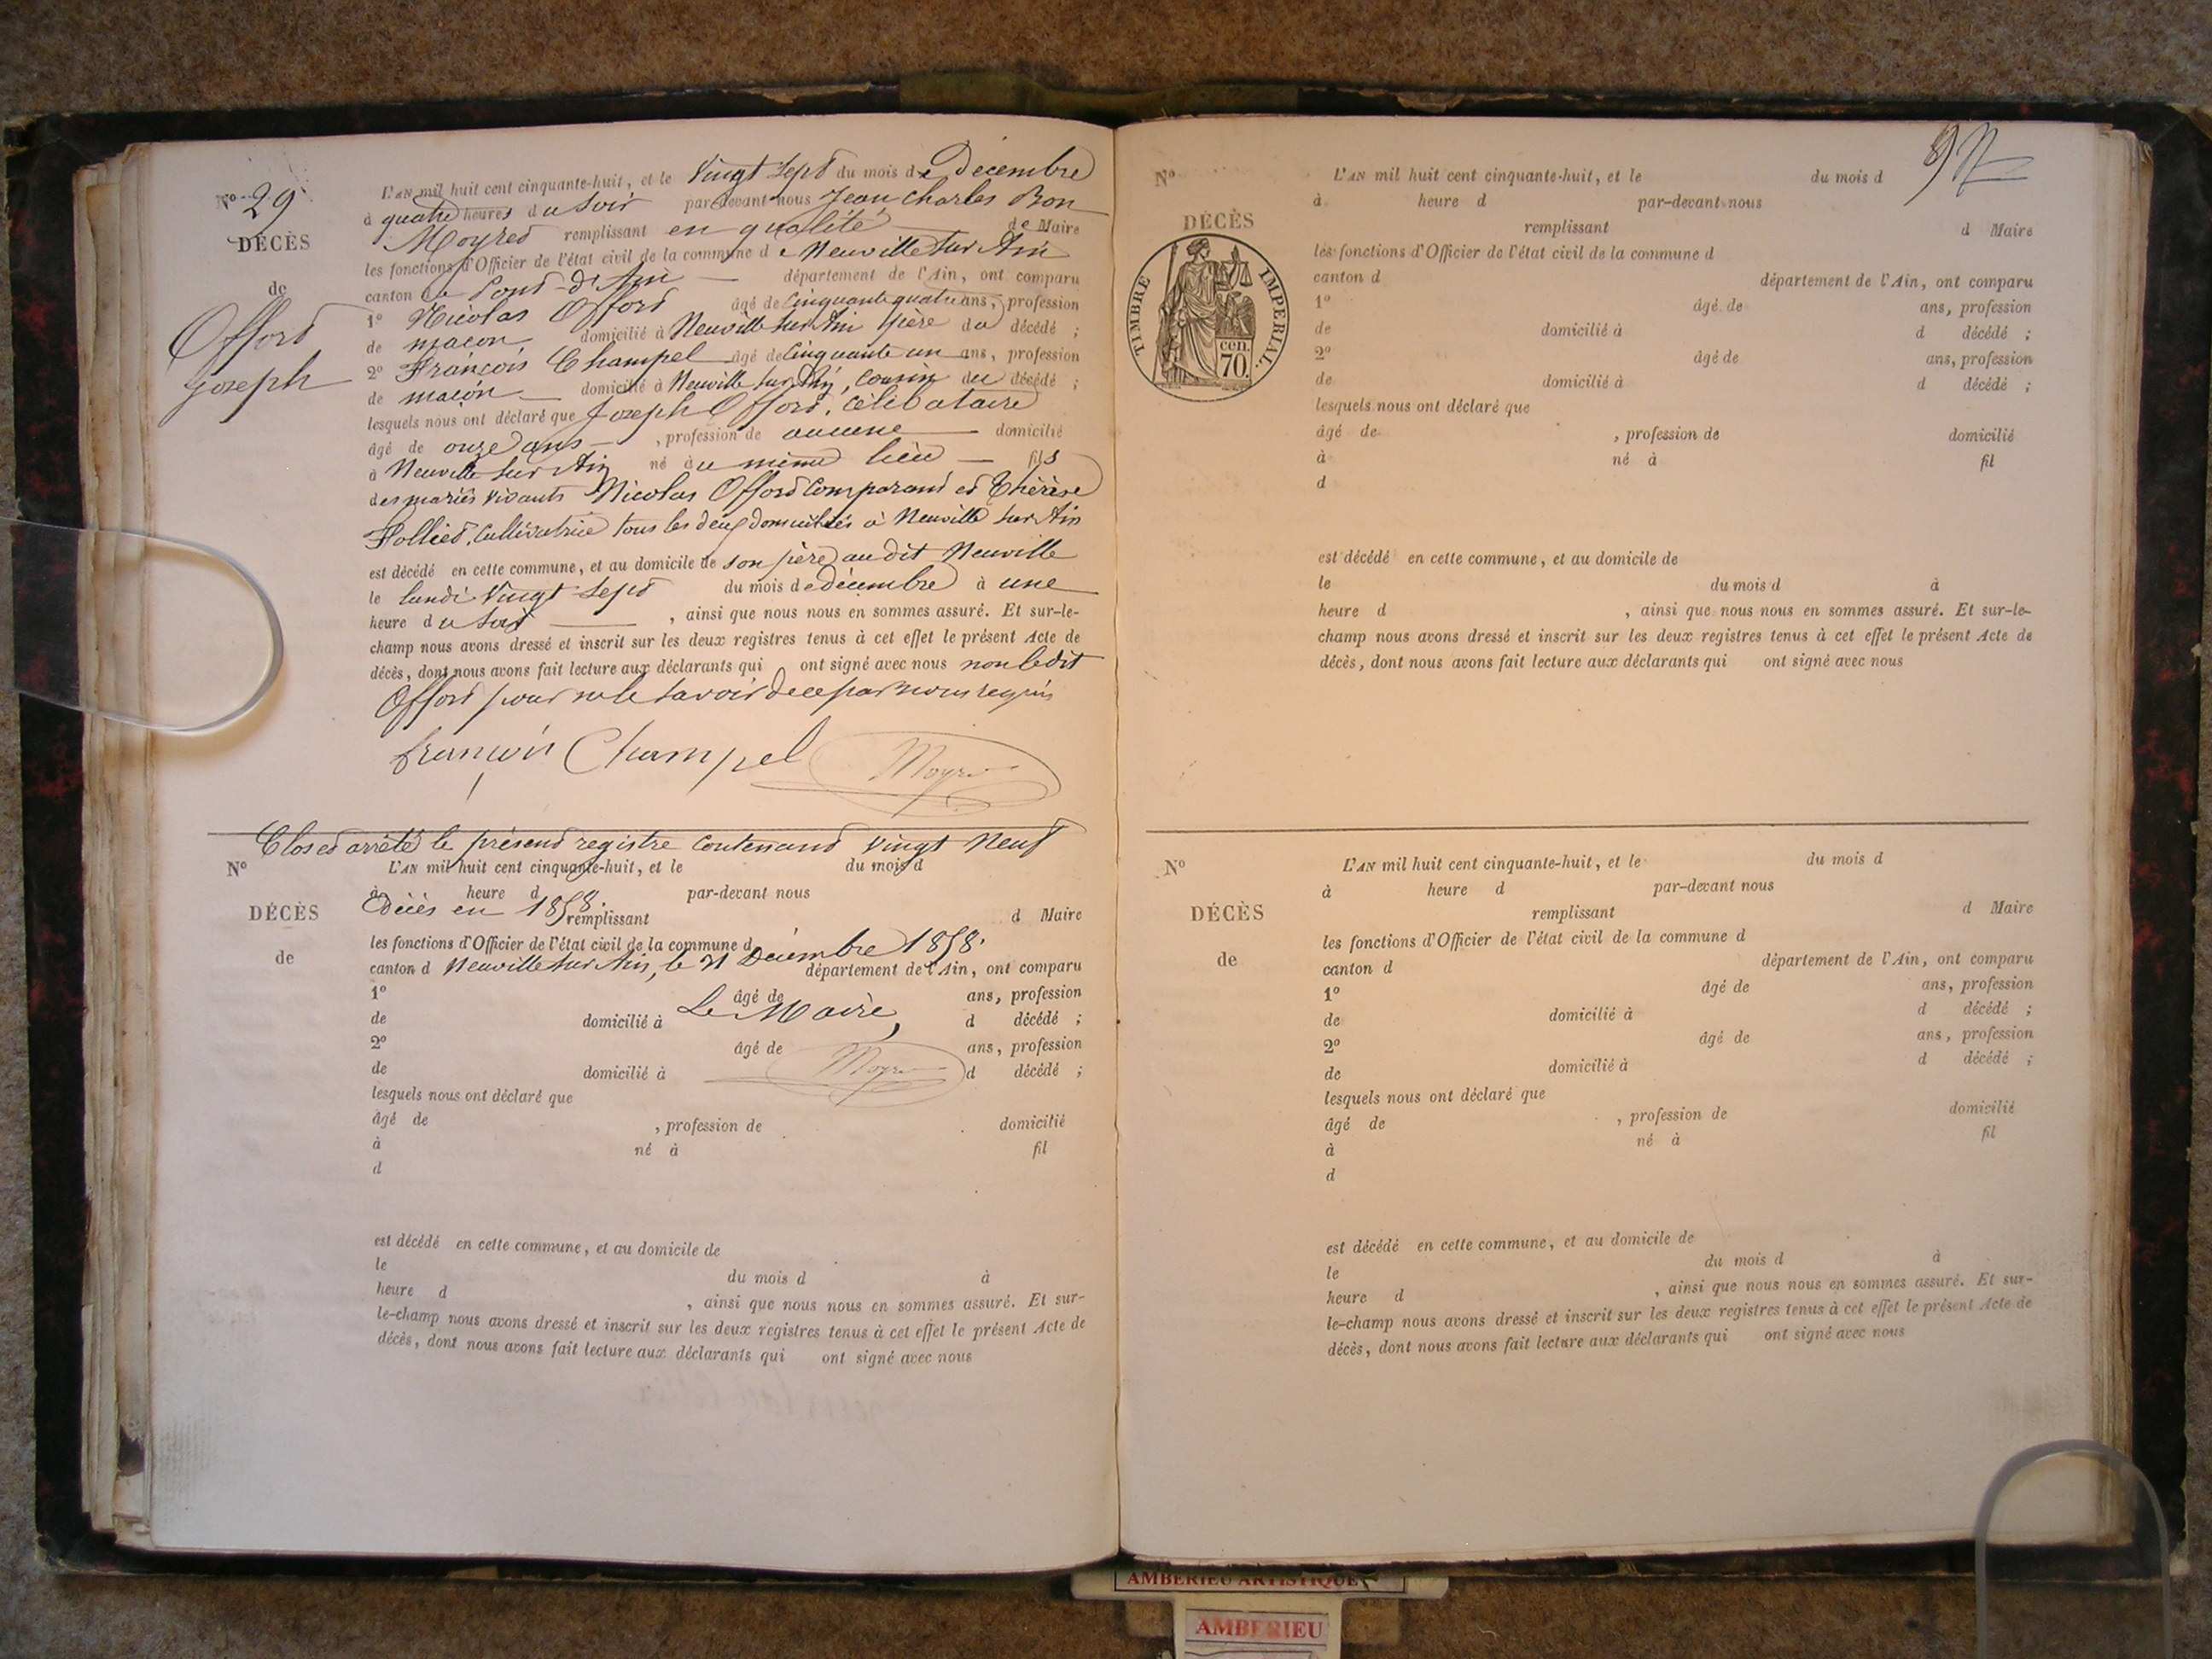 N° 29
DÉCÈS
de
Offord
Joseph
L'AN mil huit cent cinquante-huit, et le Vingt Sept du mois de Décembre
à quatre heures du Soir par-devant nous Jean Charles Bon
Moyret remplissant en qualité de Maire
les fonctions d'Officier de l'état civil de la commune de Neuville sur Ain
canton de Pont-d'Ain — département de l'Ain, ont comparu
1° Nicolas Offord âgé de Cinquante quatre ans, profession
de maçon domicilié à Neuville sur Ain père du décédé ;
2° François Champel âgé de Cinquante un ans, profession
de maçon domicilié à Neuville sur Ain, Cousin du décédé ;
lesquels nous ont déclaré que Joseph Offord, Célibataire
âgé de onze ans — , profession de aucune — domicilié
à Neuville sur Ain né au même lieu — fils
des mariés vivants Nicolas Offord Comparant et Thérèse
Cultivatrice tous les deux domiciliés à Neuville sur Ain
est décédé en cette commune, et au domicile de son père audit Neuville
le lundi Vingt Sept du mois de décembre à une
heure du Soir — , ainsi que nous nous en sommes assuré. Et sur-le-
champ nous avons dressé et inscrit sur les deux registres tenus à cet effet le présent Acte de
décès, dont nous avons fait lecture aux déclarants qui ont signé avec nous non ledit
Offord pour ne le savoir de ce par nous requis
françois Champel Moyret
Clos et arrêté le présent registre Contenant Vingt Neuf
N° L'AN mil huit cent cinquante-huit, et le du mois d
à heure d par-devant nous
DÉCÈS Décès en 1858. remplissant d Maire
les fonctions d'Officier de l'état civil de la commune d
de canton d Neuville sur Ain, le 31 Décembre 1858. département de l'Ain, ont comparu
1° âgé de ans, profession
de domicilié à Le Maire, d décédé ;
2° âgé de ans, profession
de domicilié à Moyret d décédé ;
lesquels nous ont déclaré que
âgé de , profession de domicilié
à né à fil
d
est décédé en cette commune, et au domicile de
le du mois d à
heure d , ainsi que nous nous en sommes assuré. Et sur-
le-champ nous avons dressé et inscrit sur les deux registres tenus à cet effet le présent Acte de
décès, dont nous avons fait lecture aux déclarants qui ont signé avec nous
N° L'AN mil huit cent cinquante-huit, et le du mois d
à heure d par-devant nous
DÉCÈS remplissant d Maire
TIMBRE IMPERIAL.
cen.
70.
les fonctions d'Officier de l'état civil de la commune d
canton d département de l'Ain, ont comparu
1° âgé de ans, profession
de domicilié à d décédé ;
2° âgé de ans, profession
de domicilié à d décédé ;
lesquels nous ont déclaré que
âgé de , profession de domicilié
à né à fil
d
est décédé en cette commune, et au domicile de
le du mois d à
heure d , ainsi que nous nous en sommes assuré. Et sur-le-
champ nous avons dressé et inscrit sur les deux registres tenus à cet effet le présent Acte de
décès, dont nous avons fait lecture aux déclarants qui ont signé avec nous
N° L'AN mil huit cent cinquante-huit, et le du mois d
à heure d par-devant nous
DÉCÈS remplissant d Maire
les fonctions d'Officier de l'état civil de la commune d
de canton d département de l'Ain, ont comparu
1° âgé de ans, profession
de domicilié à d décédé ;
2° âgé de ans, profession
de domicilié à d décédé ;
lesquels nous ont déclaré que
âgé de , profession de domicilié
à né à fil
d
est décédé en cette commune, et au domicile de
le du mois d à
heure d , ainsi que nous nous en sommes assuré. Et sur-
le-champ nous avons dressé et inscrit sur les deux registres tenus à cet effet le présent Acte de
décès, dont nous avons fait lecture aux déclarants qui ont signé avec nous
AMBERIEU ARTISTIQUE
AMBERIEU